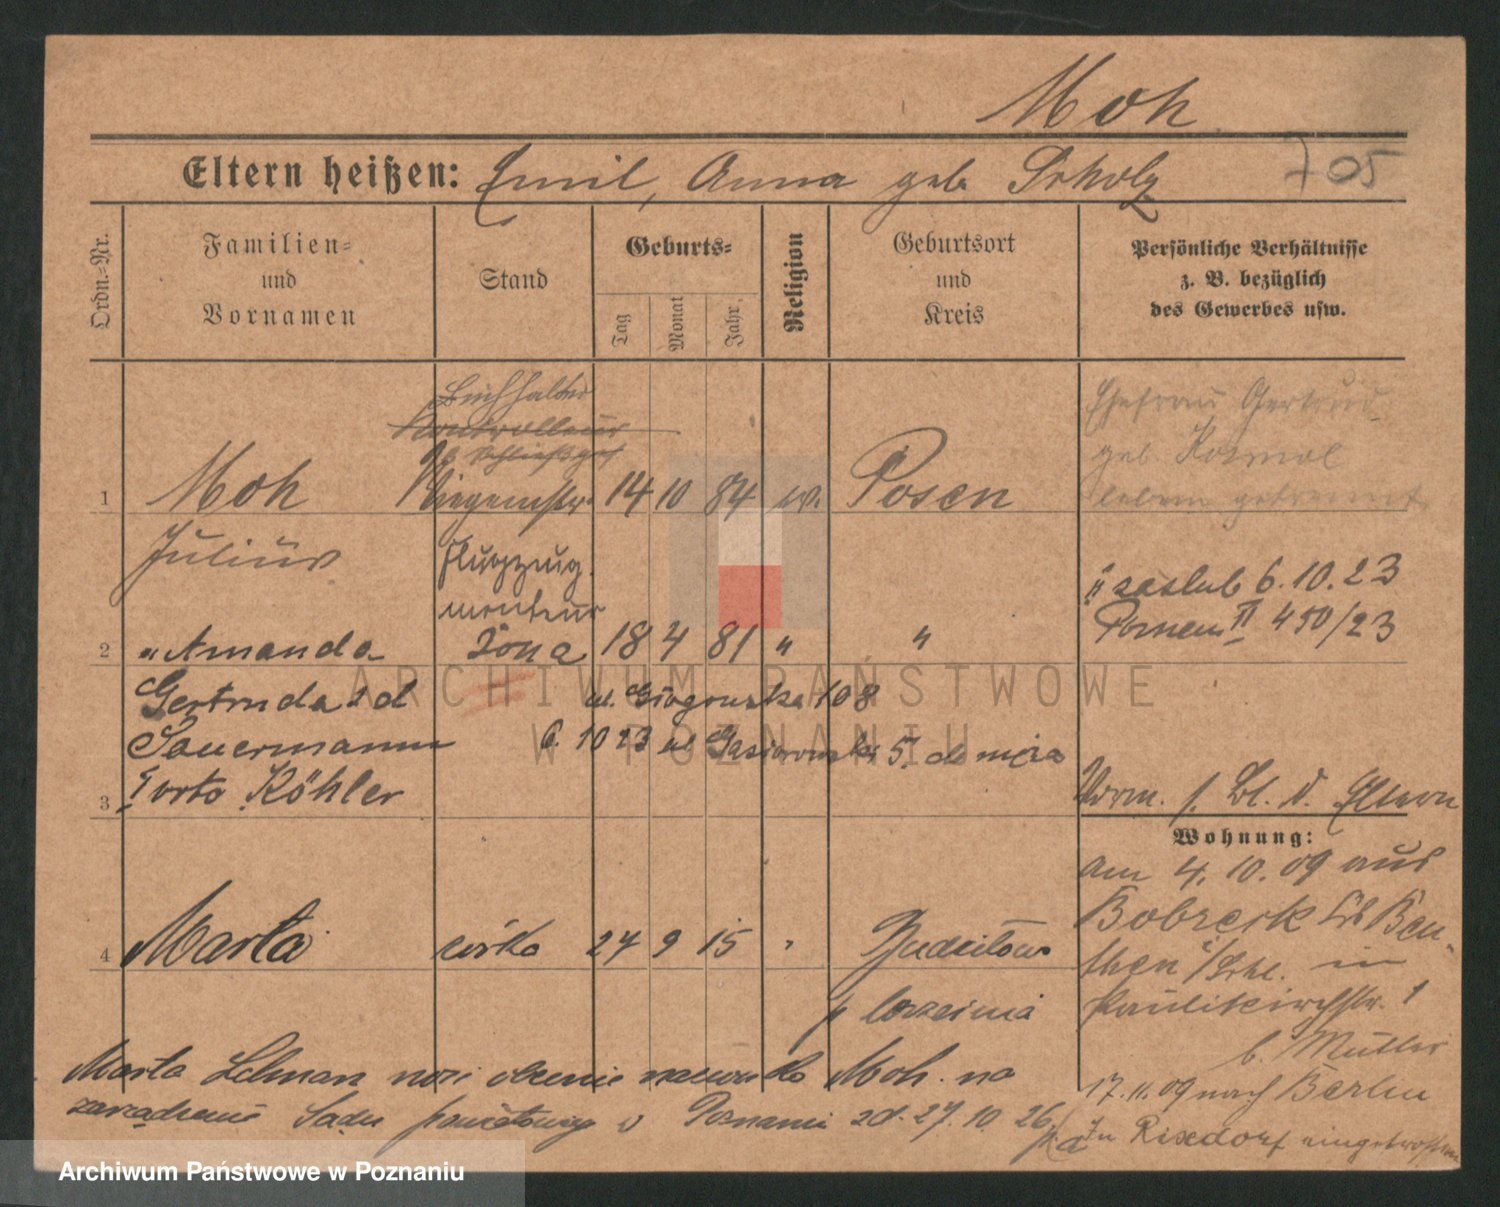 Moh
705
Eltern heißen: Emil, Anna geb Scholz
Ordn.-Nr.
Familien- und Vornamen
Stand
Geburts-
Tag
Monat
Jahr
Religion
Geburtsort und Kreis
Persönliche Verhältnisse
z. B. bezüglich
des Gewerbes usw.
Buchhalter
Kontrolleur
1 Moh
14 10 84 ev. Posen
Ehefrau Gertrud
geb.
leben getrennt
Julius
Flugzeug
monteur
zaslub 6.10.23
Posnem II 450/23
2 " Amanda żona 18 4 81 " "
Gertruda
ul. Głogowska 108
Sauermann
6. 10 23 ul Gąsiorowskich 5. do męża
3
Köhler
Vorm. s. Bl. d. Eltern
Wohnung:
am 4.10.09 aus
Bobrek Kr Beu-
then /Schl. in
Paulikirchstr. 1
b. Müller
17.11.09 nach Berlin
In Rixdorf eingetroffen
4 Marta córka 24 9 15
Marta Lehman nosi obecnie nazwisko Moh. na
zarządzenie Sądu powiatowego w Poznaniu zd. 27.10.26
ARCHIWUM PAŃSTWOWE
W POZNANIU
Archiwum Państwowe w Poznaniu